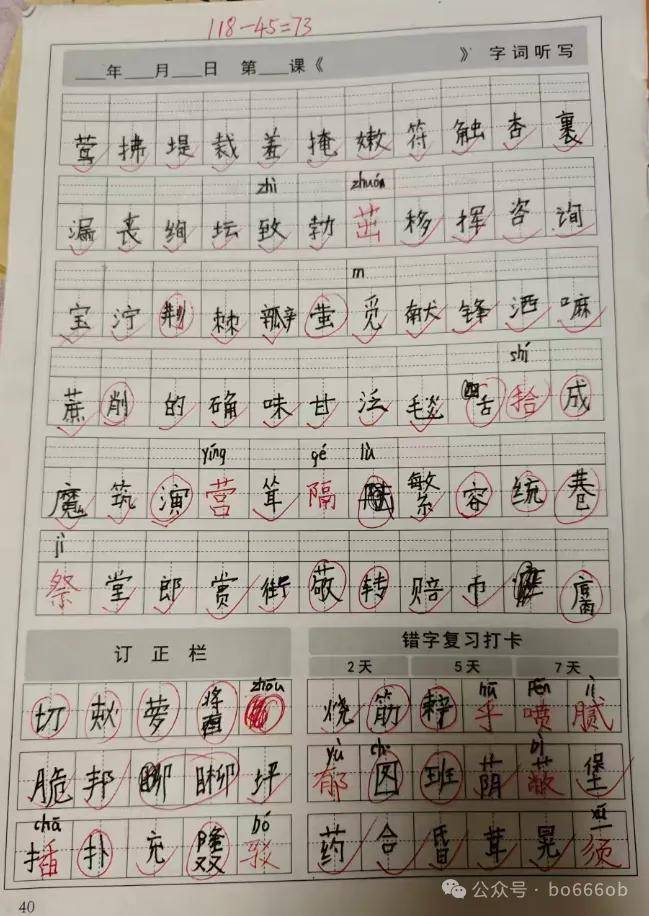 118-45=73
___年___月___日 第___课《 》 字词听写
莺 拂 堤 裁 羞 掩 嫩 符 触 杏 裹
zhì zhuó
漏 丧 绚 坛 致 勃 茁 移 挥 咨 询
m
宝 泞 荆 棘 瓢 萤 觅 献 锋 洒 嘛
shí
蔗 削 的 确 味 甘 泛 毯 舌 拾 成
yíng gé lù
魔 筑 演 营 茸 隔 繁 容 统 巷
jì
祭 堂 郎 赏 街 敬 转 赔 币
订正栏 错字复习打卡
2天 5天 7天
zhōu hū pēn jì
切 萝 烧 筋 乎 喷 腻
yù bì
脆 邦 聊 坪 郁 图 班 荫 蔽 堡
chā bó xū
插 扑 充 驳 药 合 昏 茸 晃 须
40
公众号·bo666ob